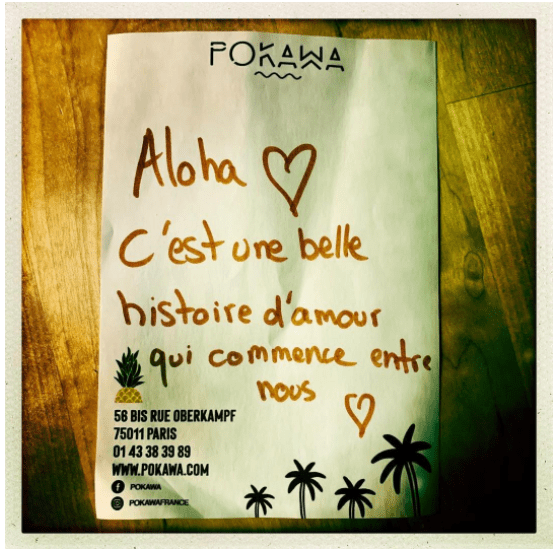 POKAWA
Aloha
C'est une belle
histoire d'amour
qui commence entre
nous
56 BIS RUE OBERKAMPF
75011 PARIS
01 43 38 39 89
WWW.POKAWA.COM
POKAWA
POKAWAFRANCE